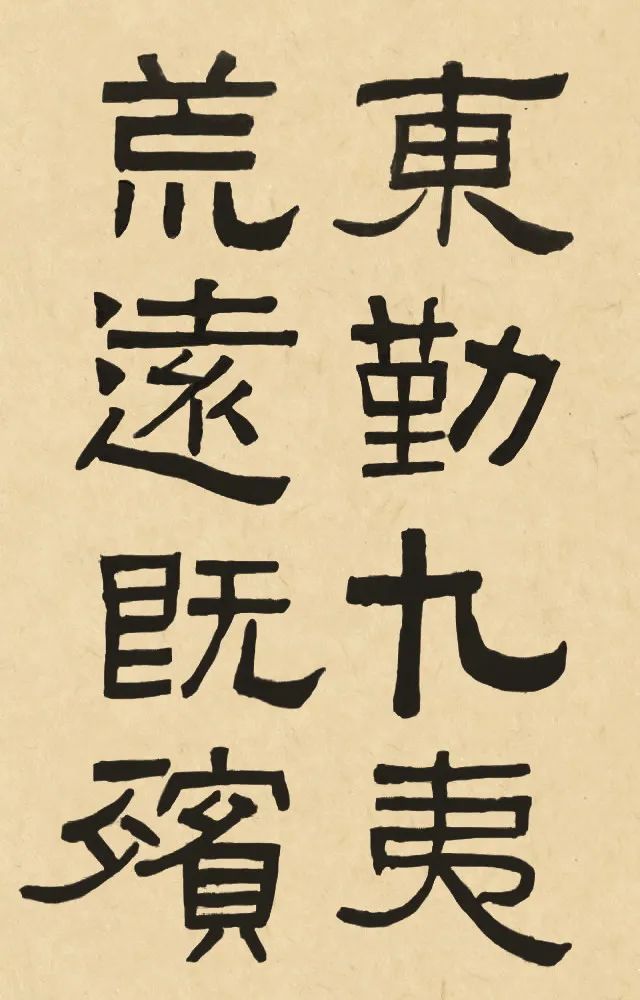 東勤九夷
荒遠既殯